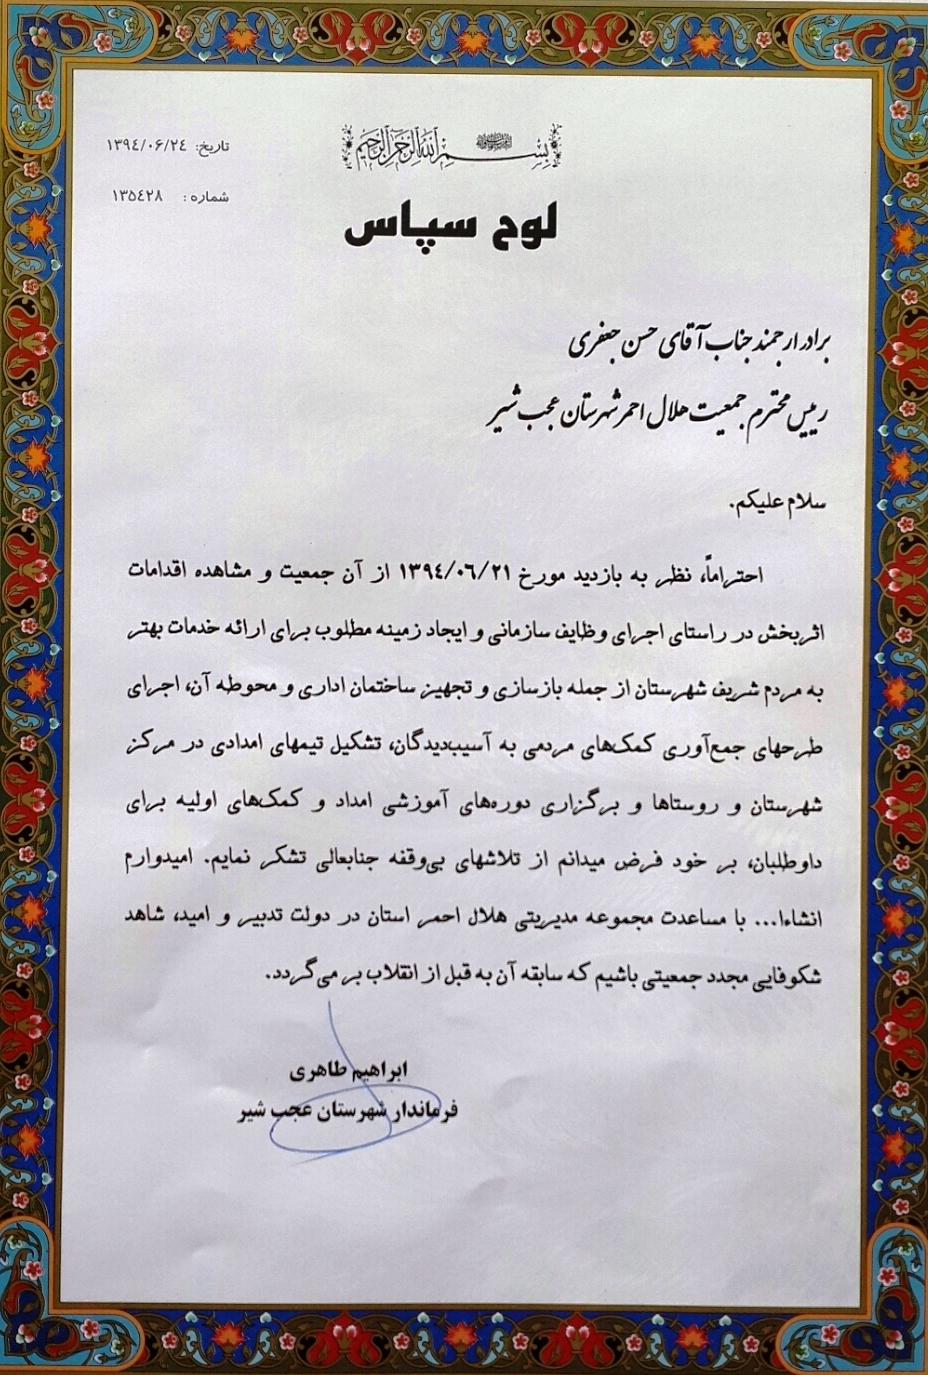 بسم الله الرحمن الرحیم
تاریخ: ۱۳۹۴/۰۶/۲۴
شماره: ۱۳۵۴۲۸
لوح سپاس
برادر ارجمند جناب آقای حسن جعفری
رییس محترم جمعیت هلال احمر شهرستان عجب شیر
سلام علیکم.
احتراماً، نظر به بازدید مورخ ۱۳۹۴/۰۶/۲۱ از آن جمعیت و مشاهده اقدامات
اثربخش در راستای اجرای وظایف سازمانی و ایجاد زمینه مطلوب برای ارائه خدمات بهتر
به مردم شریف شهرستان از جمله بازسازی و تجهیز ساختمان اداری و محوطه آن، اجرای
طرحهای جمع‌آوری کمک‌های مردمی به آسیب‌دیدگان، تشکیل تیمهای امدادی در مرکز
شهرستان و روستاها و برگزاری دوره‌های آموزشی امداد و کمک‌های اولیه برای
داوطلبان، بر خود فرض میدانم از تلاشهای بی‌وقفه جنابعالی تشکر نمایم. امیدوارم
انشاءا... با مساعدت مجموعه مدیریتی هلال احمر استان در دولت تدبیر و امید، شاهد
شکوفایی مجدد جمعیتی باشیم که سابقه آن به قبل از انقلاب بر می‌گردد.
ابراهیم طاهری
فرماندار شهرستان عجب شیر